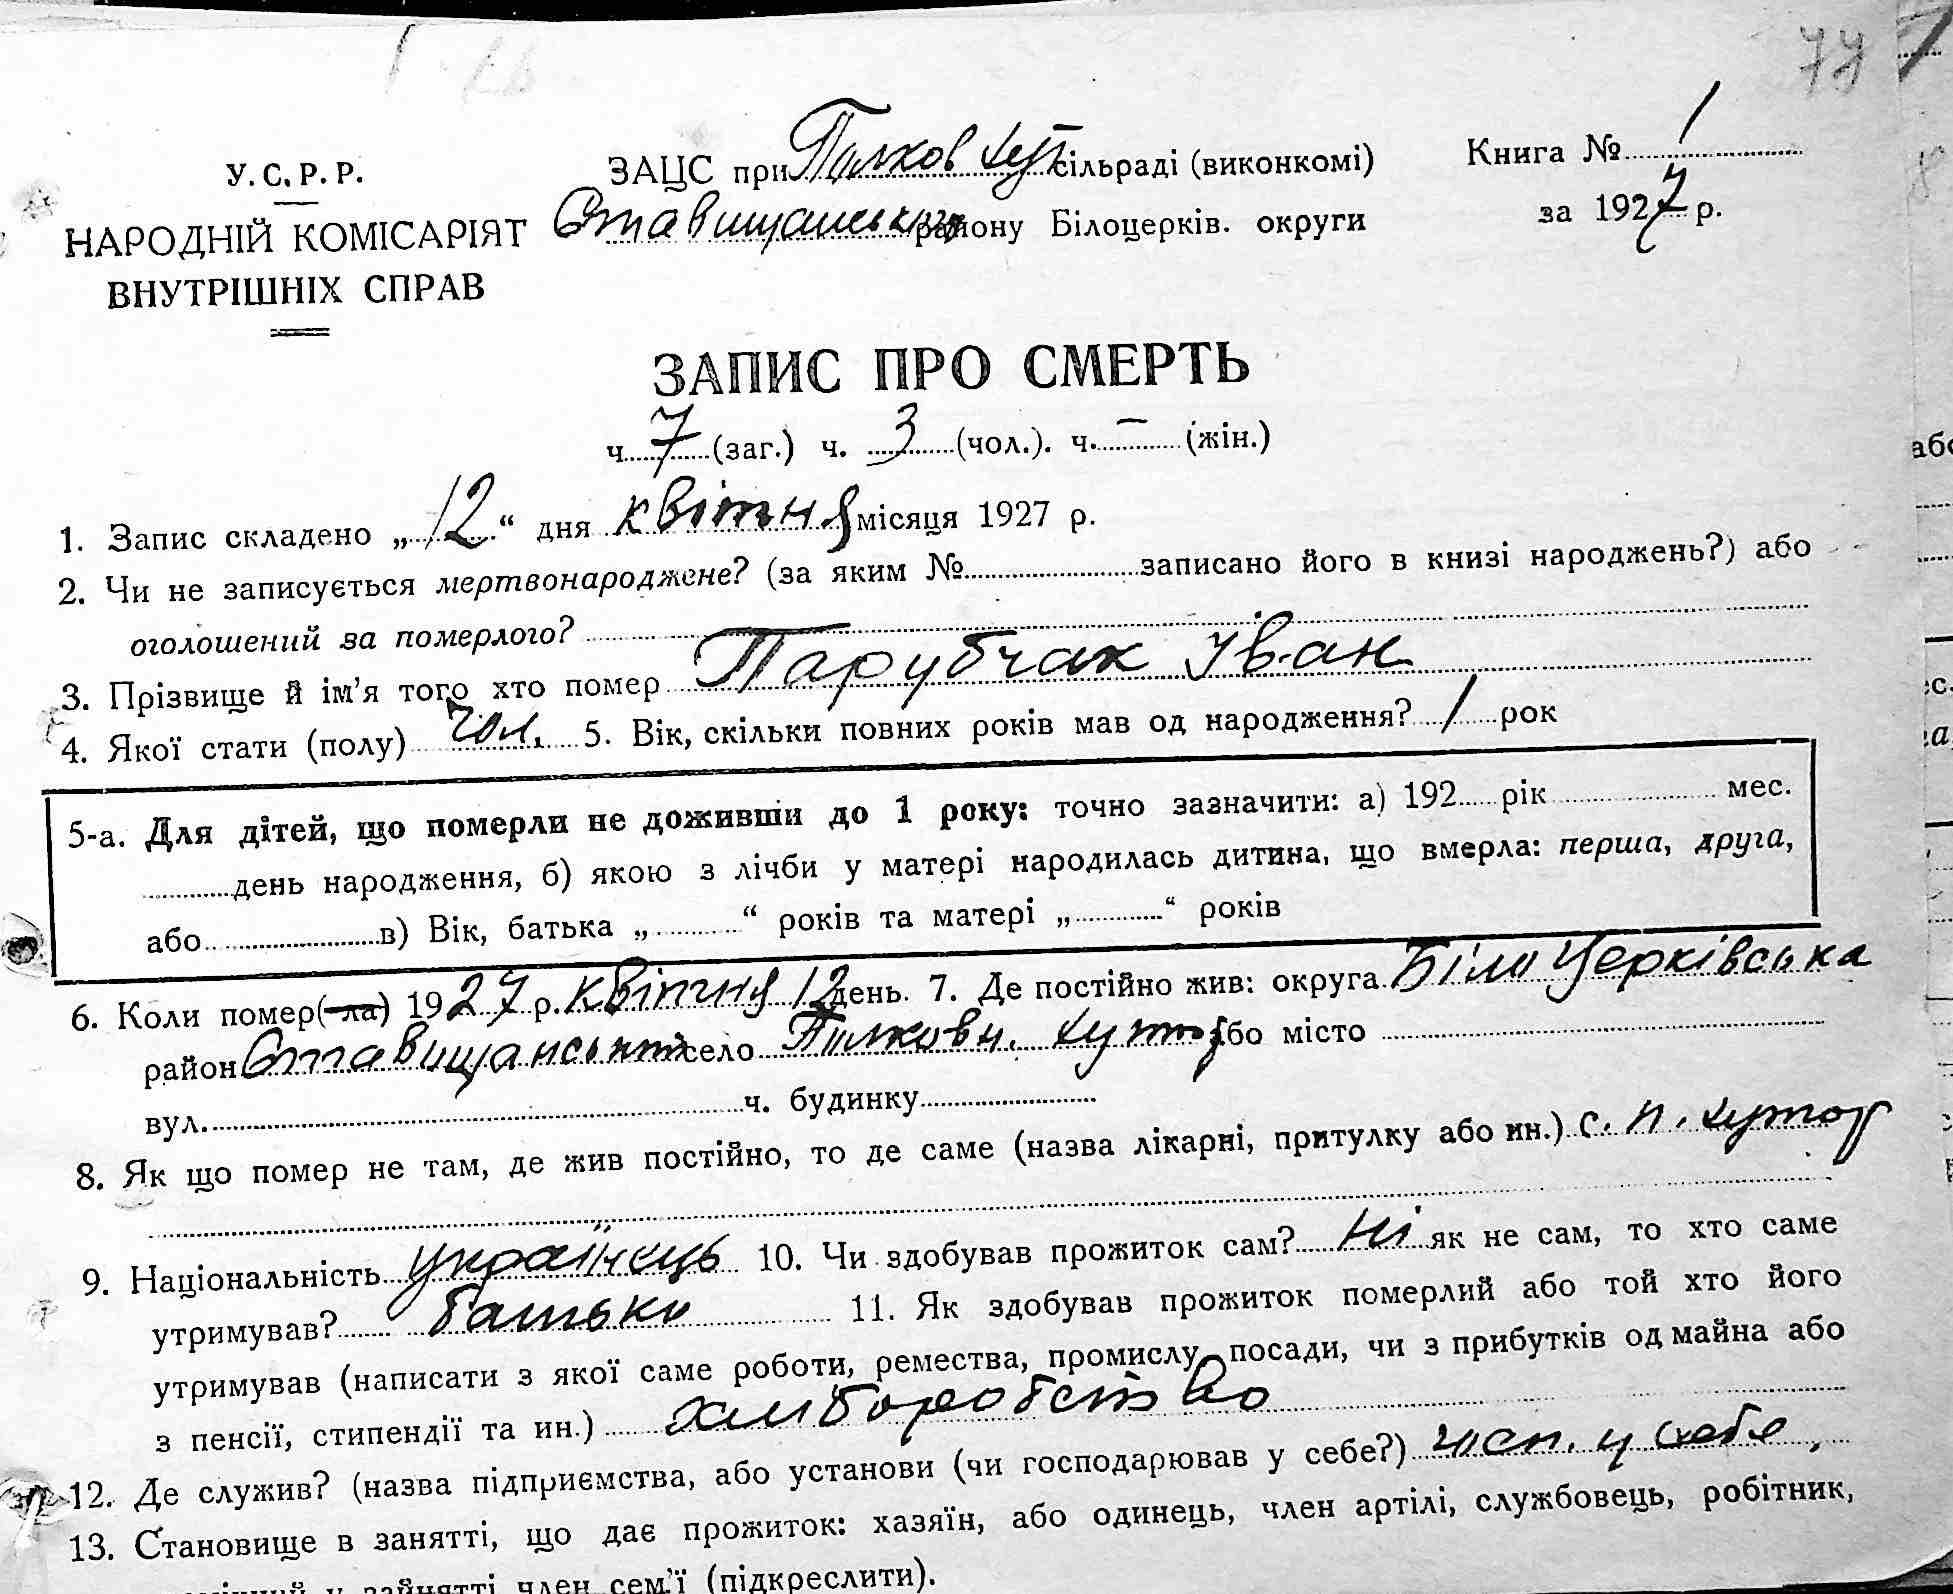 77
У. С. Р. Р.
НАРОДНІЙ КОМІСАРІЯТ
ВНУТРІШНІХ СПРАВ
ЗАЦС при хут сільраді (виконкомі)
Ставищанськ району Білоцерків. округи
Книга № 1
за 1927 р.
ЗАПИС ПРО СМЕРТЬ
ч. 7 (заг.) ч. 3 (чол.). ч. – (жін.)
1. Запис складено „12“ дня квітня місяця 1927 р.
2. Чи не записується мертвонароджене? (за яким № записано його в книзі народжень?) або
оголошений за померлого?
3. Прізвище й ім’я того хто помер Парубчак Іван
4. Якої стати (полу) чол. 5. Вік, скільки повних років мав од народження? 1 рок
5-а. Для дітей, що померли не доживши до 1 року: точно зазначити: а) 192 рік мес.
день народження, б) якою з лічби у матері народилась дитина, що вмерла: перша, друга,
або в) Вік, батька „ “ років та матері „ “ років
6. Коли помер(-ла) 1927 р. квітня 12 день. 7. Де постійно жив: округа Біло Церківська
район Ставищанський село хутор або місто
вул. ч. будинку
8. Як що помер не там, де жив постійно, то де саме (назва лікарні, притулку або ин.) с. п. хутор
9. Національність українець 10. Чи здобував прожиток сам? ні як не сам, то хто саме
утримував? батьки 11. Як здобував прожиток померлий або той хто його
утримував (написати з якої саме роботи, ремества, промислу, посади, чи з прибутків од майна або
з пенсії, стипендії та ин.) хліборобство
12. Де служив? (назва підприємства, або установи (чи господарював у себе?) госп. у себе,
13. Становище в занятті, що дає прожиток: хазяїн, або одинець, член артілі, службовець, робітник,
у зайнятті член сем’ї (підкреслити).